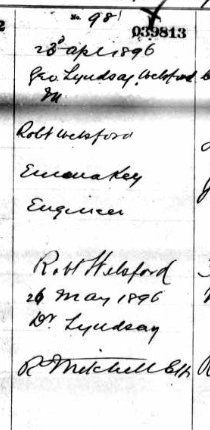 No 98
039813
23d Apl 1896
Geo. Lyndsay Welsford
M
Robt Welsford
Emma Key
Engineer
Robt Welsford
26 May 1896
Dr Lyndsay
R Mitchell